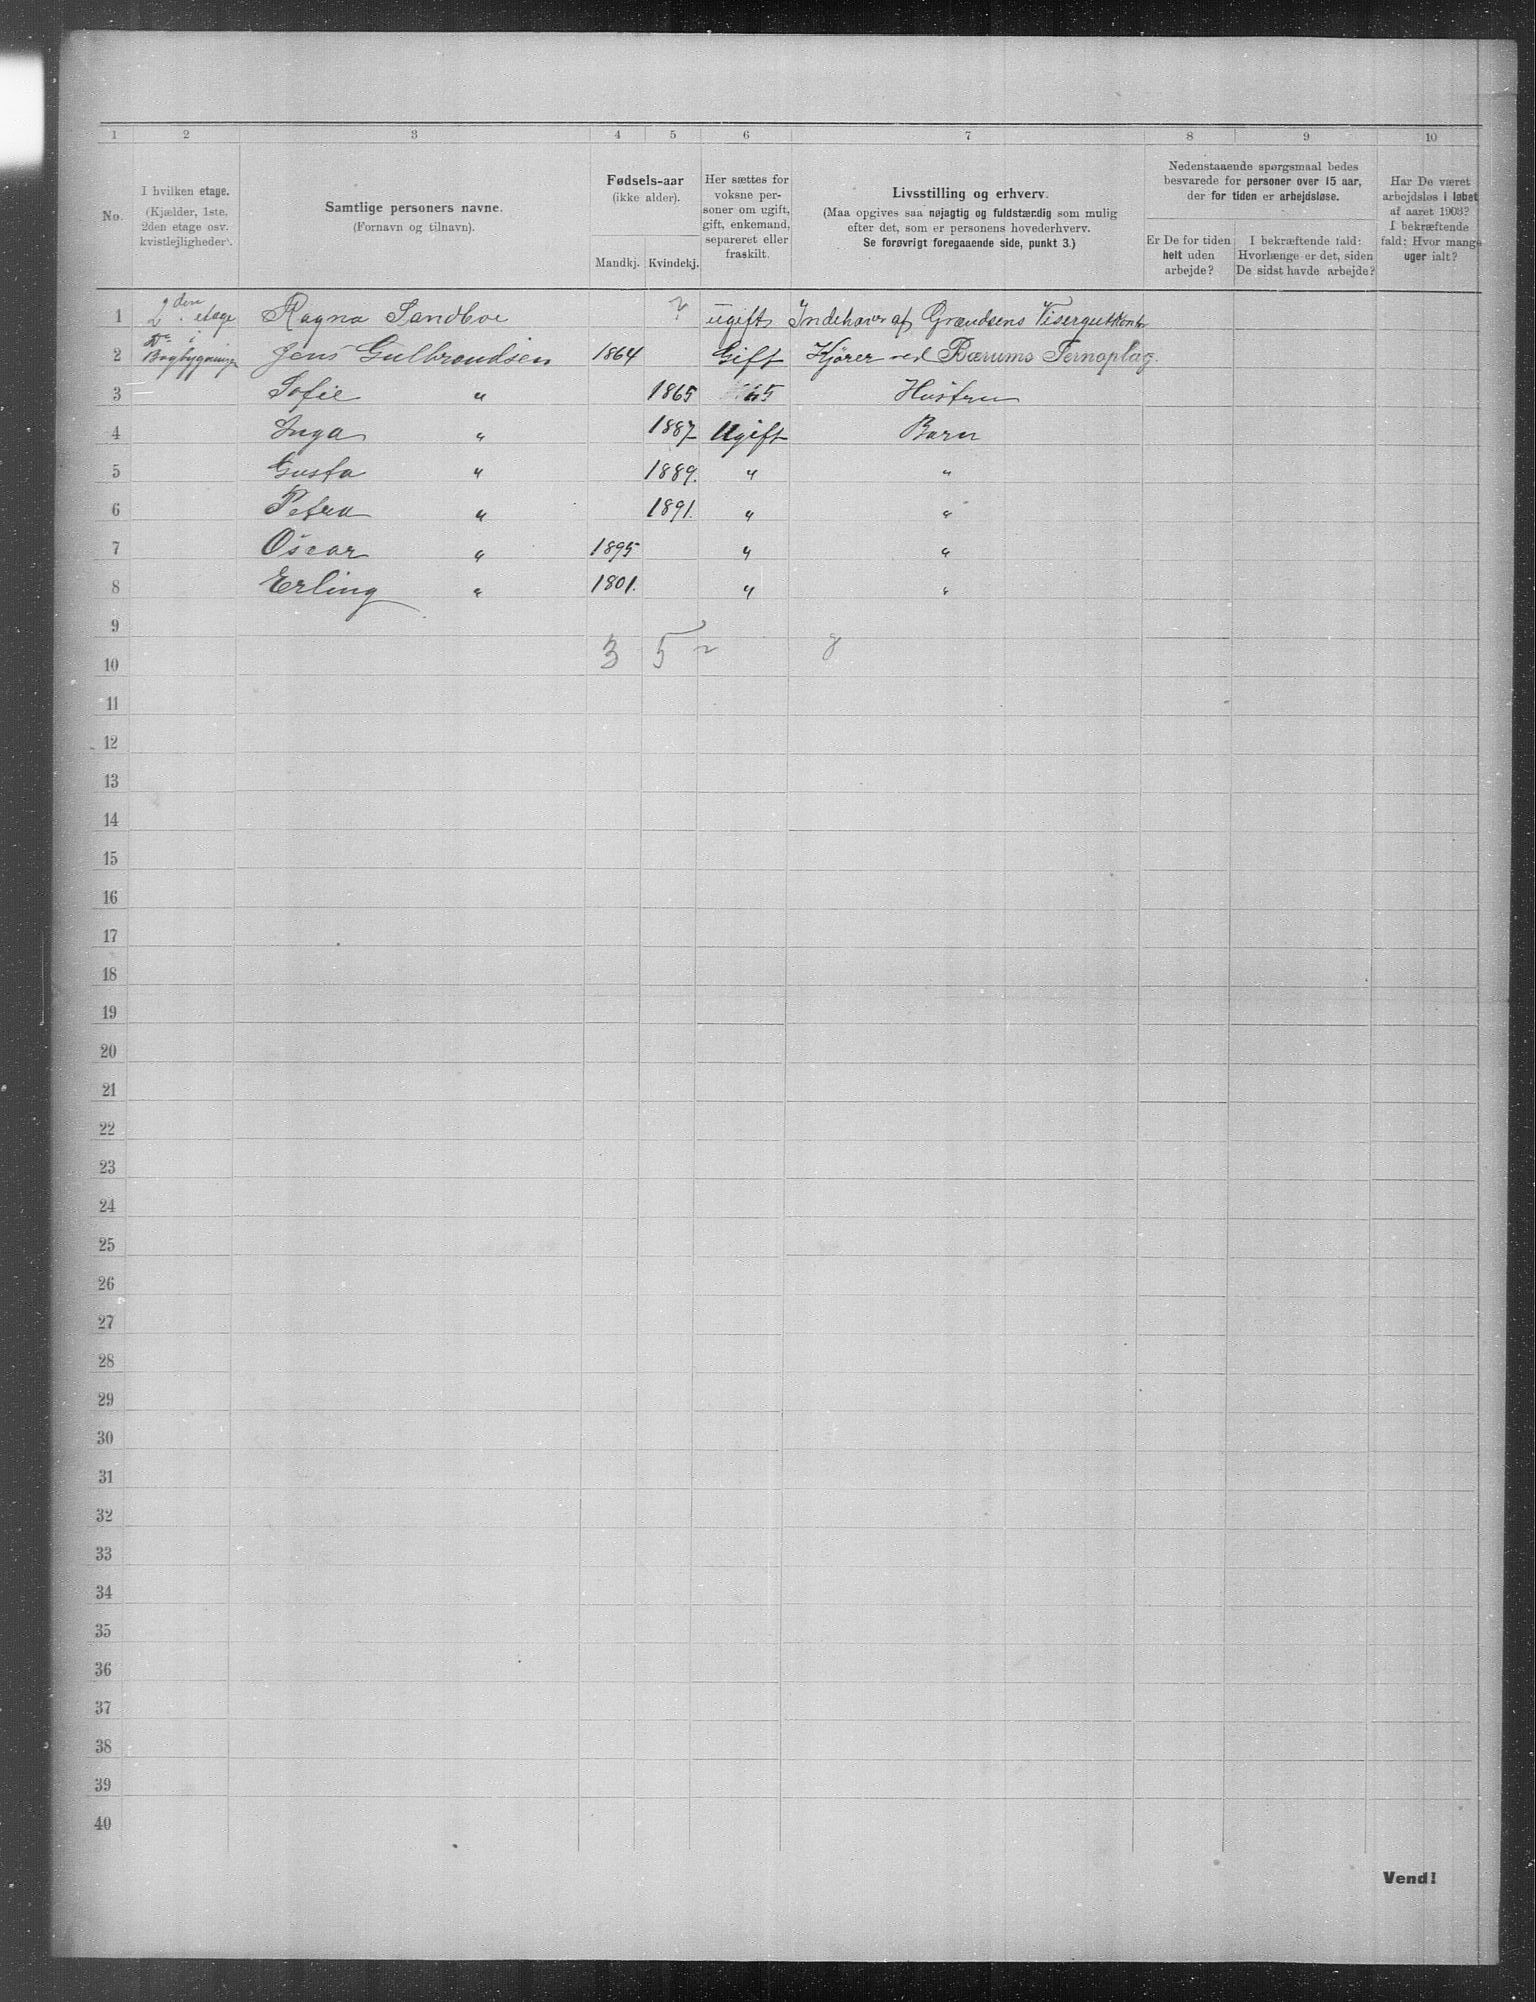 1 2 3 4 5 6 7 8 9 10
No.
I hvilken etage.
(Kjælder, 1ste,
2den etage osv.
kvistlejligheder).
Samtlige personers navne.
(Fornavn og tilnavn).
Fødsels-aar
(ikke alder).
Mandkj. Kvindekj.
Her sættes for
voksne per-
soner om ugift,
gift, enkemand,
separeret eller
fraskilt.
Livsstilling og erhverv.
(Maa opgives saa nøjagtig og fuldstærdig som mulig
efter det, som er personens hovederhverv.
Se forøvrigt foregaaende side, punkt 3.)
Nedenstaaende spørgsmaal bedes
besvarede for personer over 15 aar,
der for tiden er arbejdsløse.
Er De for tiden
helt uden
arbejde?
I bekræftende fald:
Hvorlænge er det, siden
De sidst havde arbejde?
Har De været
arbejdsløs i løbet
af aaret 1903?
I bekræftende
fald: Hvor mange
uger ialt?
1 2den etage Ragna Sandboe ? ugift Indehaver af Grændsens Visergutkontor
2 Do i Bagbygningen Jens Gulbrandsen 1864 Gift Kjører ved Bærums Jernoplag.
3 Sofie " 1865 Hustru
4 Inga " 1887 Ugift Barn
5 Gusta " 1889. " "
6 Petra " 1891. " "
7 Oscar " 1895 " "
8 Erling " 1801. " "
9
10 3 5 8
11
12
13
14
15
16
17
18
19
20
21
22
23
24
25
26
27
28
29
30
31
32
33
34
35
36
37
38
39
40
Vend!